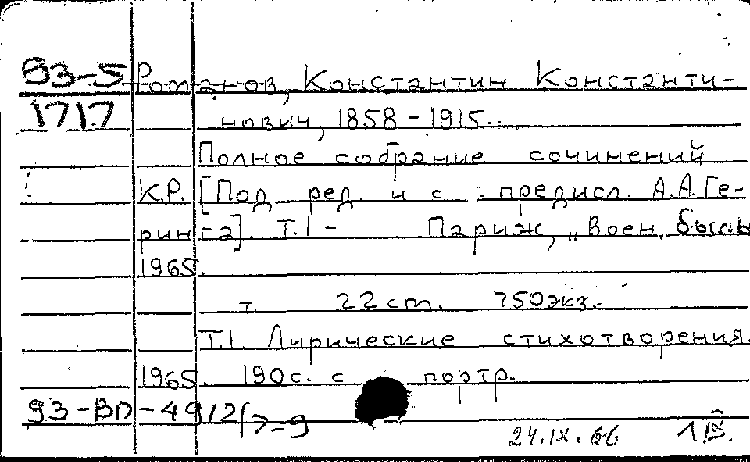 93-5 Романов, Константин Константи-
1717 нович, 1858-1915.
Полное собрание сочинений
К.Р. [Под ред. и с предисл. А.А.Ге-
ринга]. Т.1- Париж, „Воен. быль
1965.
т. 22 cm. 750экз.
Т.1. Лирические стихотворения.
1965 190с. с портр.
93-ВП-4912
24.IX.66